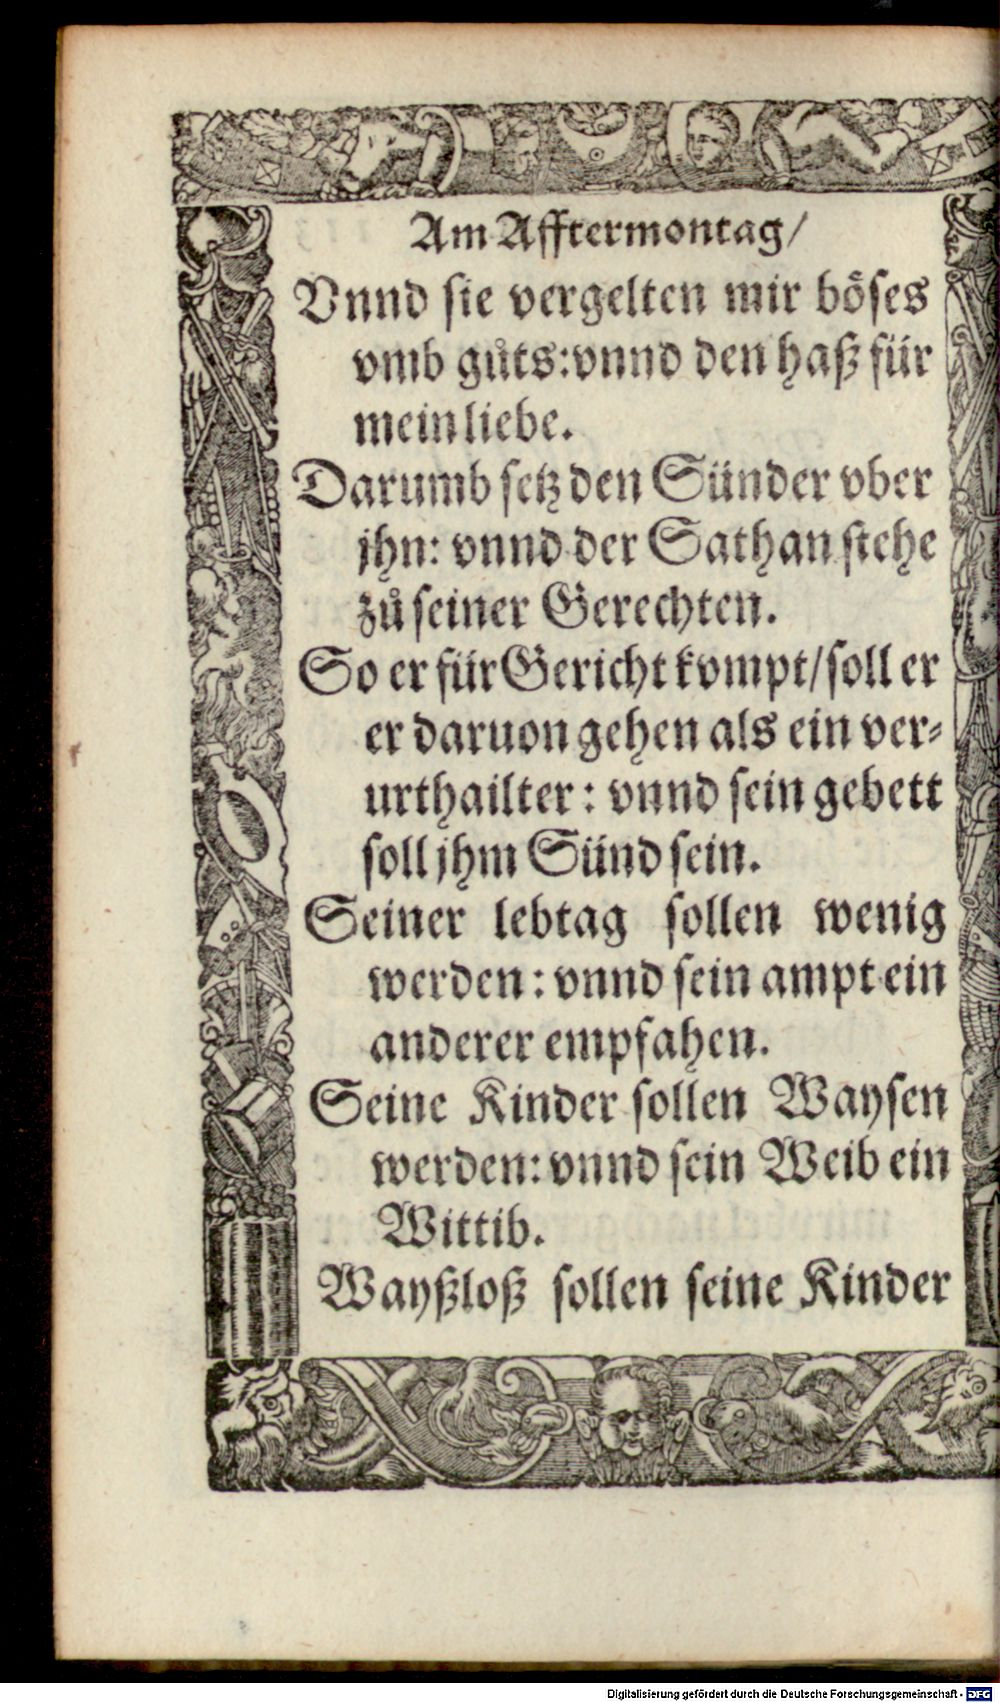 Am Afftermontag/
Vnnd sie vergelten mir böses
vmb gůts: vnnd den haß für
mein liebe.
Darumb setz den Sünder vber
jhn: vnnd der Sathan stehe
zů seiner Gerechten.
So er für Gericht kompt/ soll er
er daruon gehen als ein ver-
urthailter: vnnd sein gebett
soll jhm Sünd sein.
Seiner lebtag sollen wenig
werden: vnnd sein ampt ein
anderer empfahen.
Seine Kinder sollen Waysen
werden: vnnd sein Weib ein
Wittib.
Wayßloß sollen seine Kinder
Digitalisierung gefördert durch die Deutsche Forschungsgemeinschaft - DFG